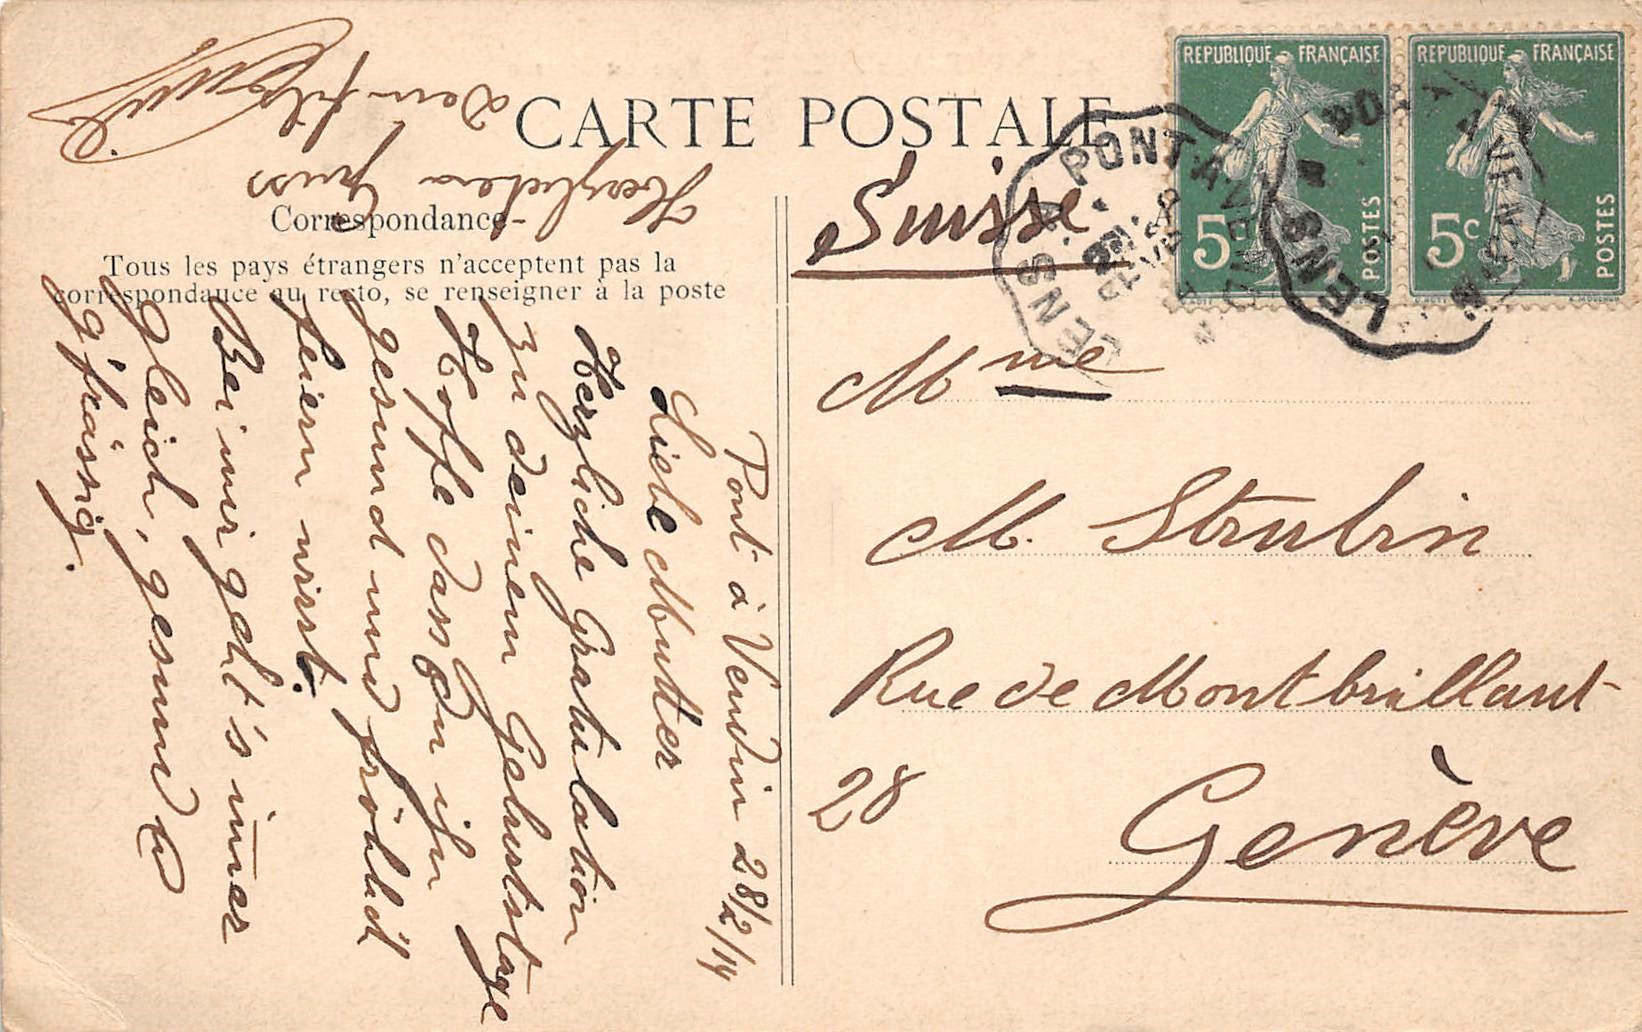 CARTE POSTALE
Suisse
Correspondance
Tous les pays étrangers n'acceptent pas la
correspondance au recto, se renseigner à la poste
REPUBLIQUE FRANÇAISE
5c
POSTES
REPUBLIQUE FRANÇAISE
5c
POSTES
PONT-A-VENDIN
LENS
Mme
M. Strubin
Rue de Montbrillant
28
Genève
Pont à Vendin 28/2/14
Liebe Mutter
Herzliche Gratulation
zu deinem Geburtstage
Hoffe dass Du ihn
gesund und fröhlich
feiern wirst.
Bei mir geht's immer
gleich, gesund &
g'frässig.
Herzlichen Gruss
dein